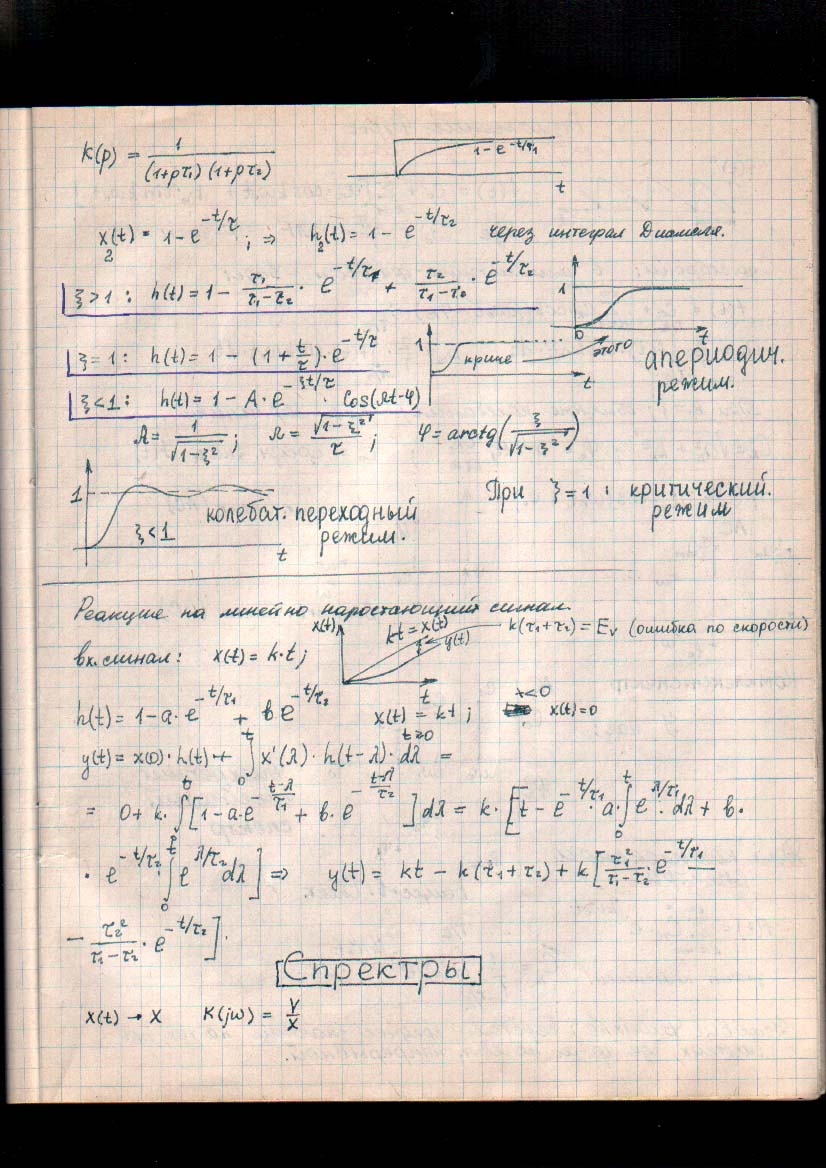 K(p) = 1/((1+pτ₁)(1+pτ₂))
1 − e^(−t/τ₁)
t
x₂(t) = 1 − e^(−t/τ); ⇒ h₂(t) = 1 − e^(−t/τ₂) через интеграл Диамеля.
ξ>1: h(t) = 1 − τ₁/(τ₁−τ₂) · e^(−t/τ₁) + τ₂/(τ₁−τ₂) · e^(−t/τ₂)
1
0
t
ξ=1: h(t) = 1 − (1 + t/τ) · e^(−t/τ)
1
круче
этого
t
апериодич.
режим.
ξ<1: h(t) = 1 − A · e^(−ξt/τ) · Cos(Ωt−φ)
A = 1/√(1−ξ²); Ω = √(1−ξ²)/τ; φ = arctg(ξ/√(1−ξ²))
1
ξ<1
t
колебат. переходный
режим.
При ξ=1: критический.
режим
Реакция на линейно наростающий сигнал.
x(t)
kt = x(t)
y(t)
k(τ₁+τ₁) = Eᵥ (ошибка по скорости)
t
вх. сигнал: x(t) = k·t;
h(t) = 1 − a·e^(−t/τ₁) + b·e^(−t/τ₂) x(t) = kt; t≥0 x<0 x(t)=0
y(t) = x(0)·h(t) + ∫₀ᵗ x'(λ)·h(t−λ)·dλ =
= 0 + k·∫₀ᵗ[1 − a·e^(−(t−λ)/τ₁) + b·e^(−(t−λ)/τ₂)]dλ = k·[t − e^(−t/τ₁)·a·∫₀ᵗ e^(λ/τ₁)·dλ + b·
· e^(−t/τ₂)·∫₀ᵗ e^(λ/τ₂)dλ] ⇒ y(t) = kt − k(τ₁+τ₂) + k[τ₁²/(τ₁−τ₂)·e^(−t/τ₁) −
− τ₂²/(τ₁−τ₂)·e^(−t/τ₂)].
Спректры
x(t) → X K(jω) = Y/X